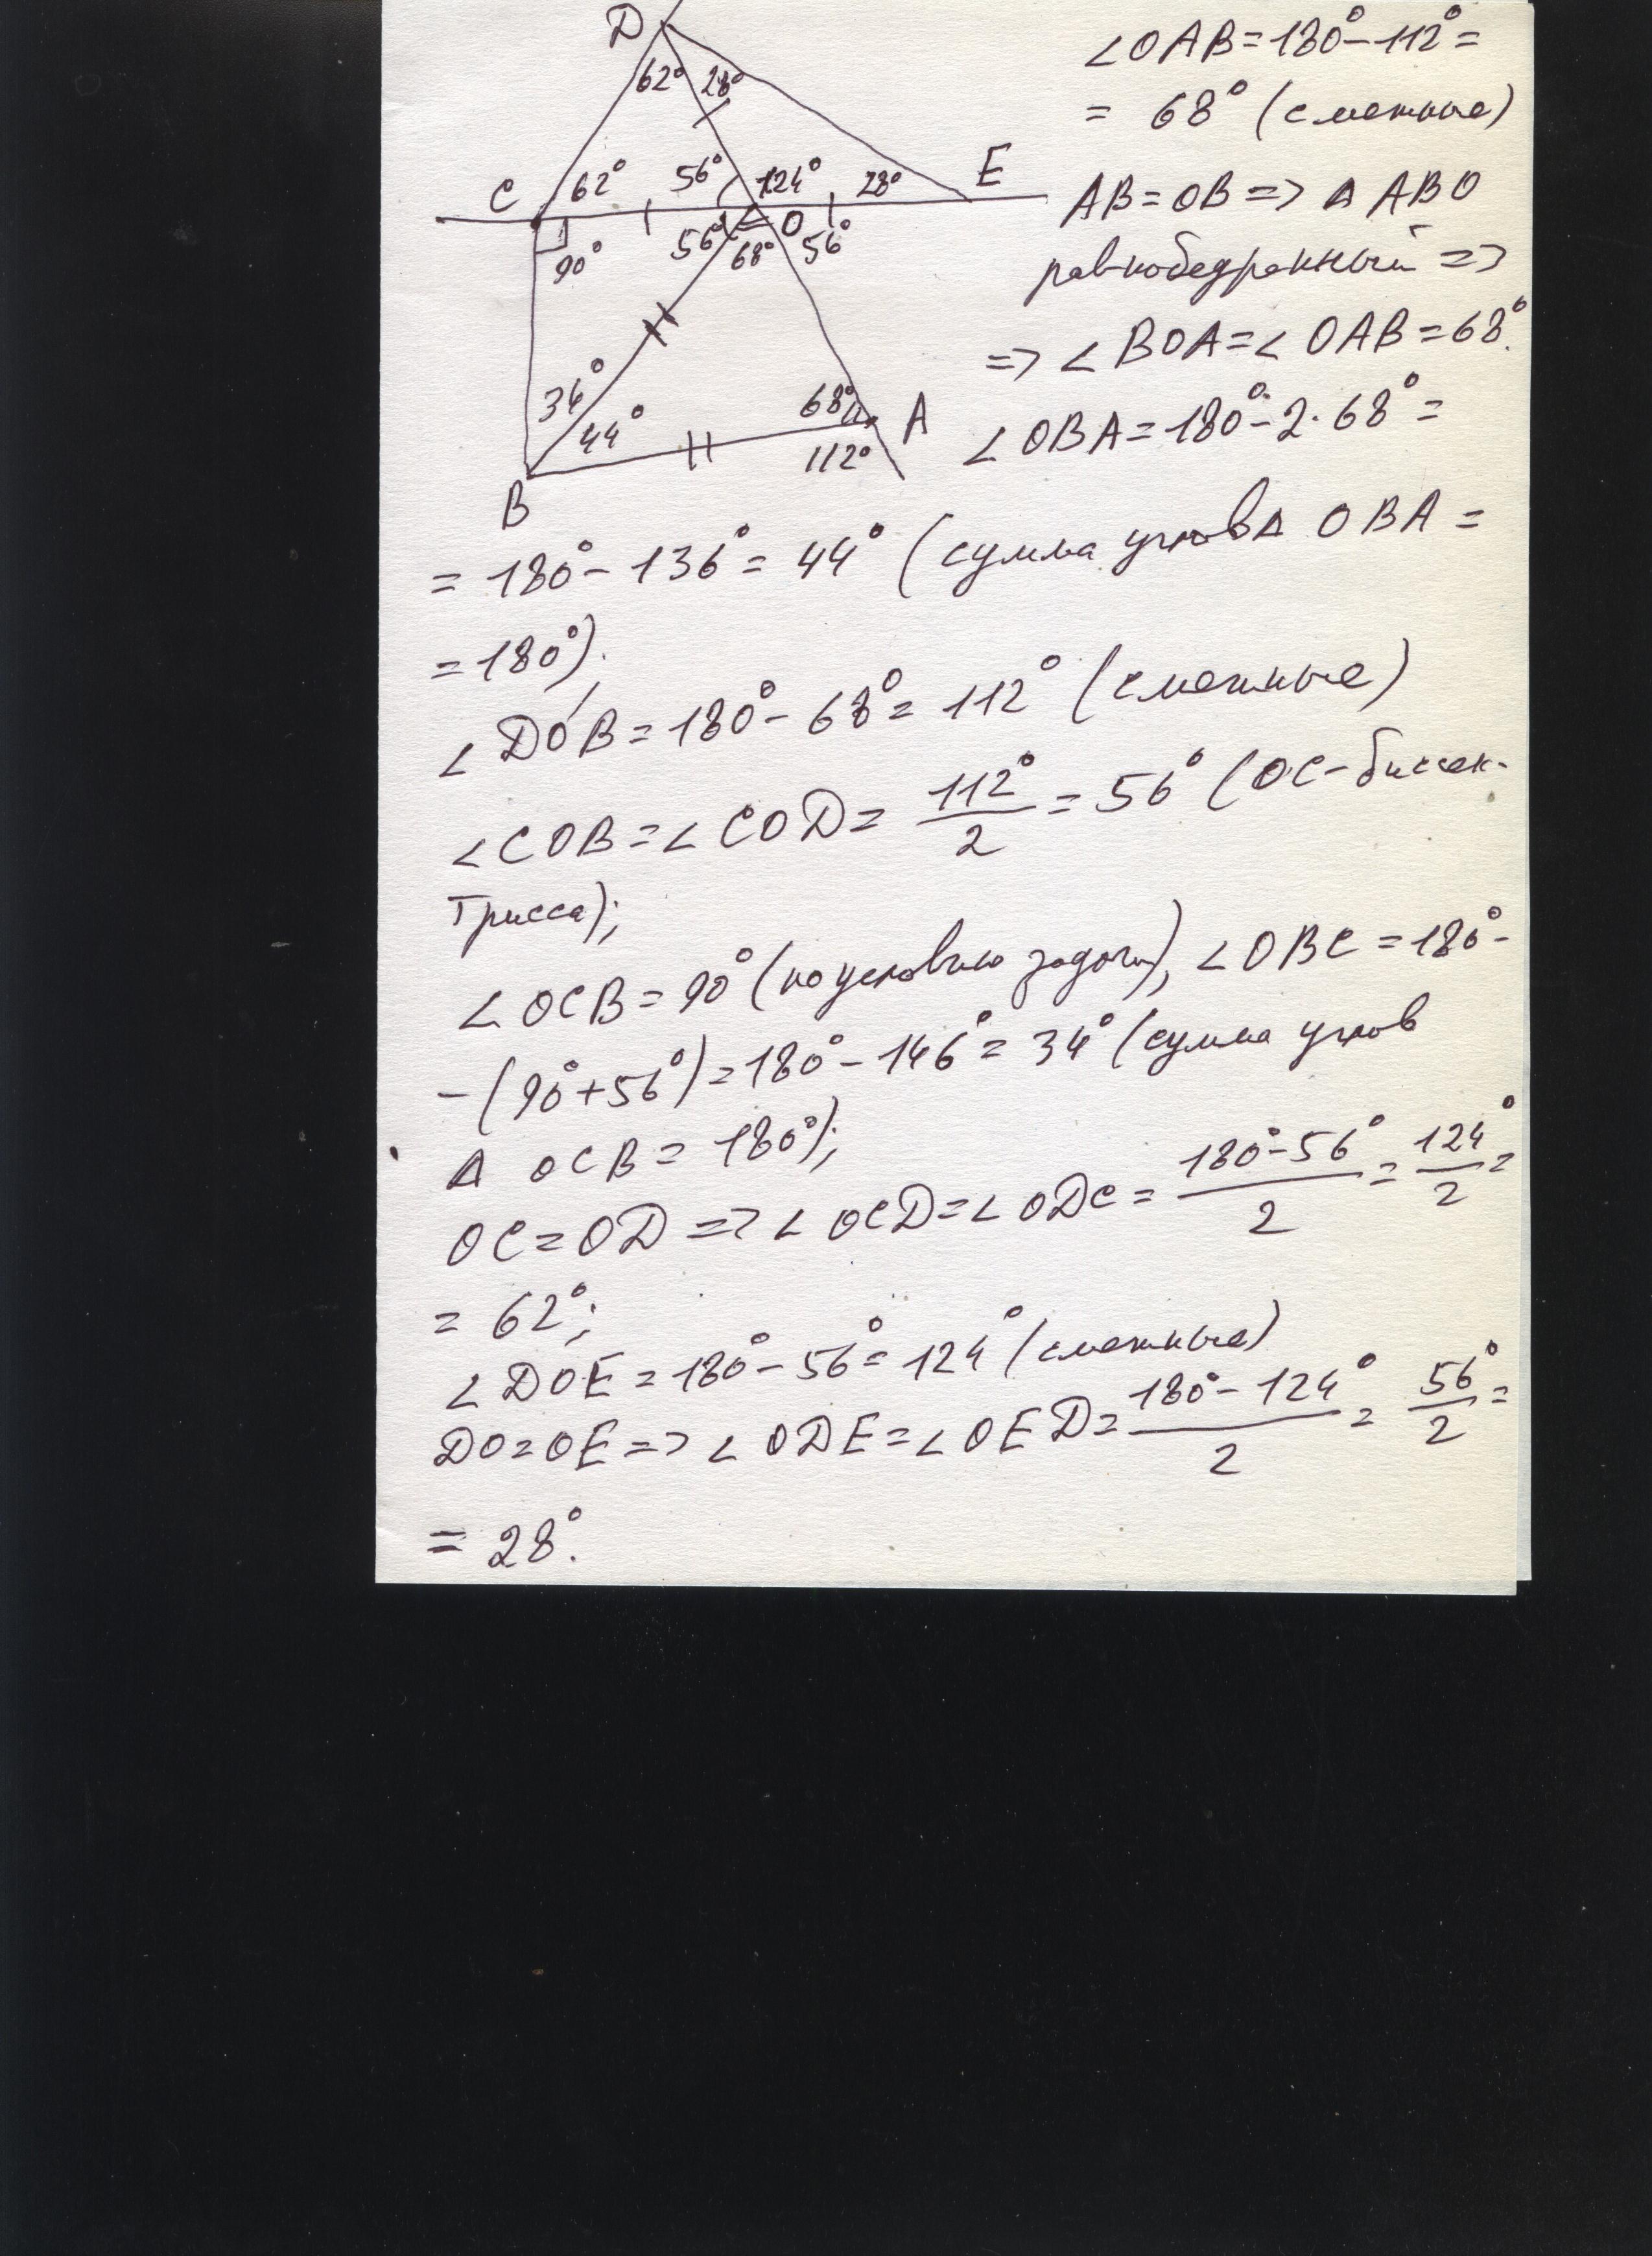 D
62° 28°
C 62° 56° 124° 28° E
90° 56° 68° O 56°
34°
44° 68° A
112°
B
∠OAB=180°-112°=
= 68° (смежные)
AB=OB=> Δ ABO
равнобедренный =>
=> ∠BOA=∠OAB=68°.
∠OBA=180°-2·68°=
= 180°-136°= 44° (сумма углов Δ OBA =
=180°).
∠DOB=180°-68°= 112° (смежные)
∠COB=∠COD= 112°/2 = 56° (OC-биссек-
трисса);
∠OCB=90° (по условию задачи), ∠OBC=180°-
-(90°+56°)=180°-146°= 34° (сумма углов
Δ OCB= 180°);
OC=OD => ∠OCD=∠ODC= 180°-56°/2 = 124°/2 =
= 62°;
∠DOE=180°-56°= 124° (смежные)
DO=OE => ∠ODE=∠OED= 180°-124°/2 = 56°/2 =
= 28°.